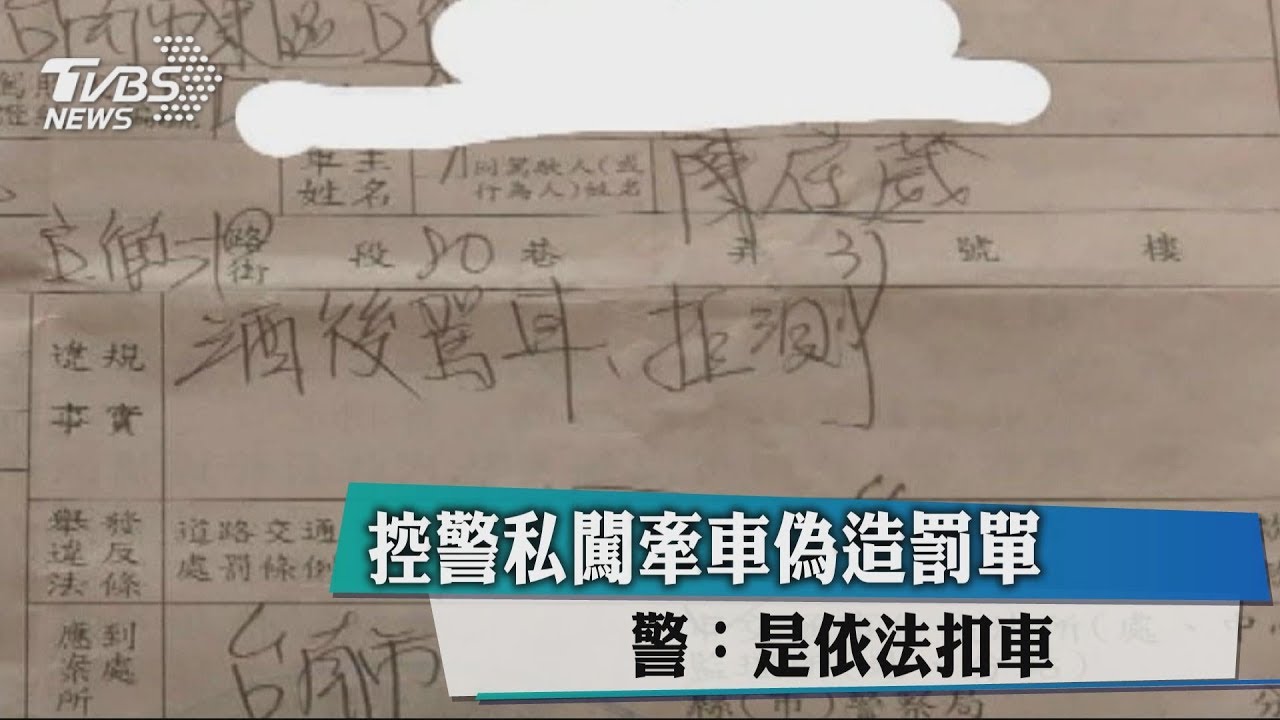 台南市東區
TVBS
NEWS
車主
姓名
同駕駛人(或
行為人)姓名
路
街
段 80 巷 弄 31 號 樓
違規
事實
酒後駕車、拒測
舉發
違反
法條
道路交通
處罰條例
控警私闖牽車偽造罰單
警：是依法扣車
應到
案處
所
台南市
縣(市)警察局
分